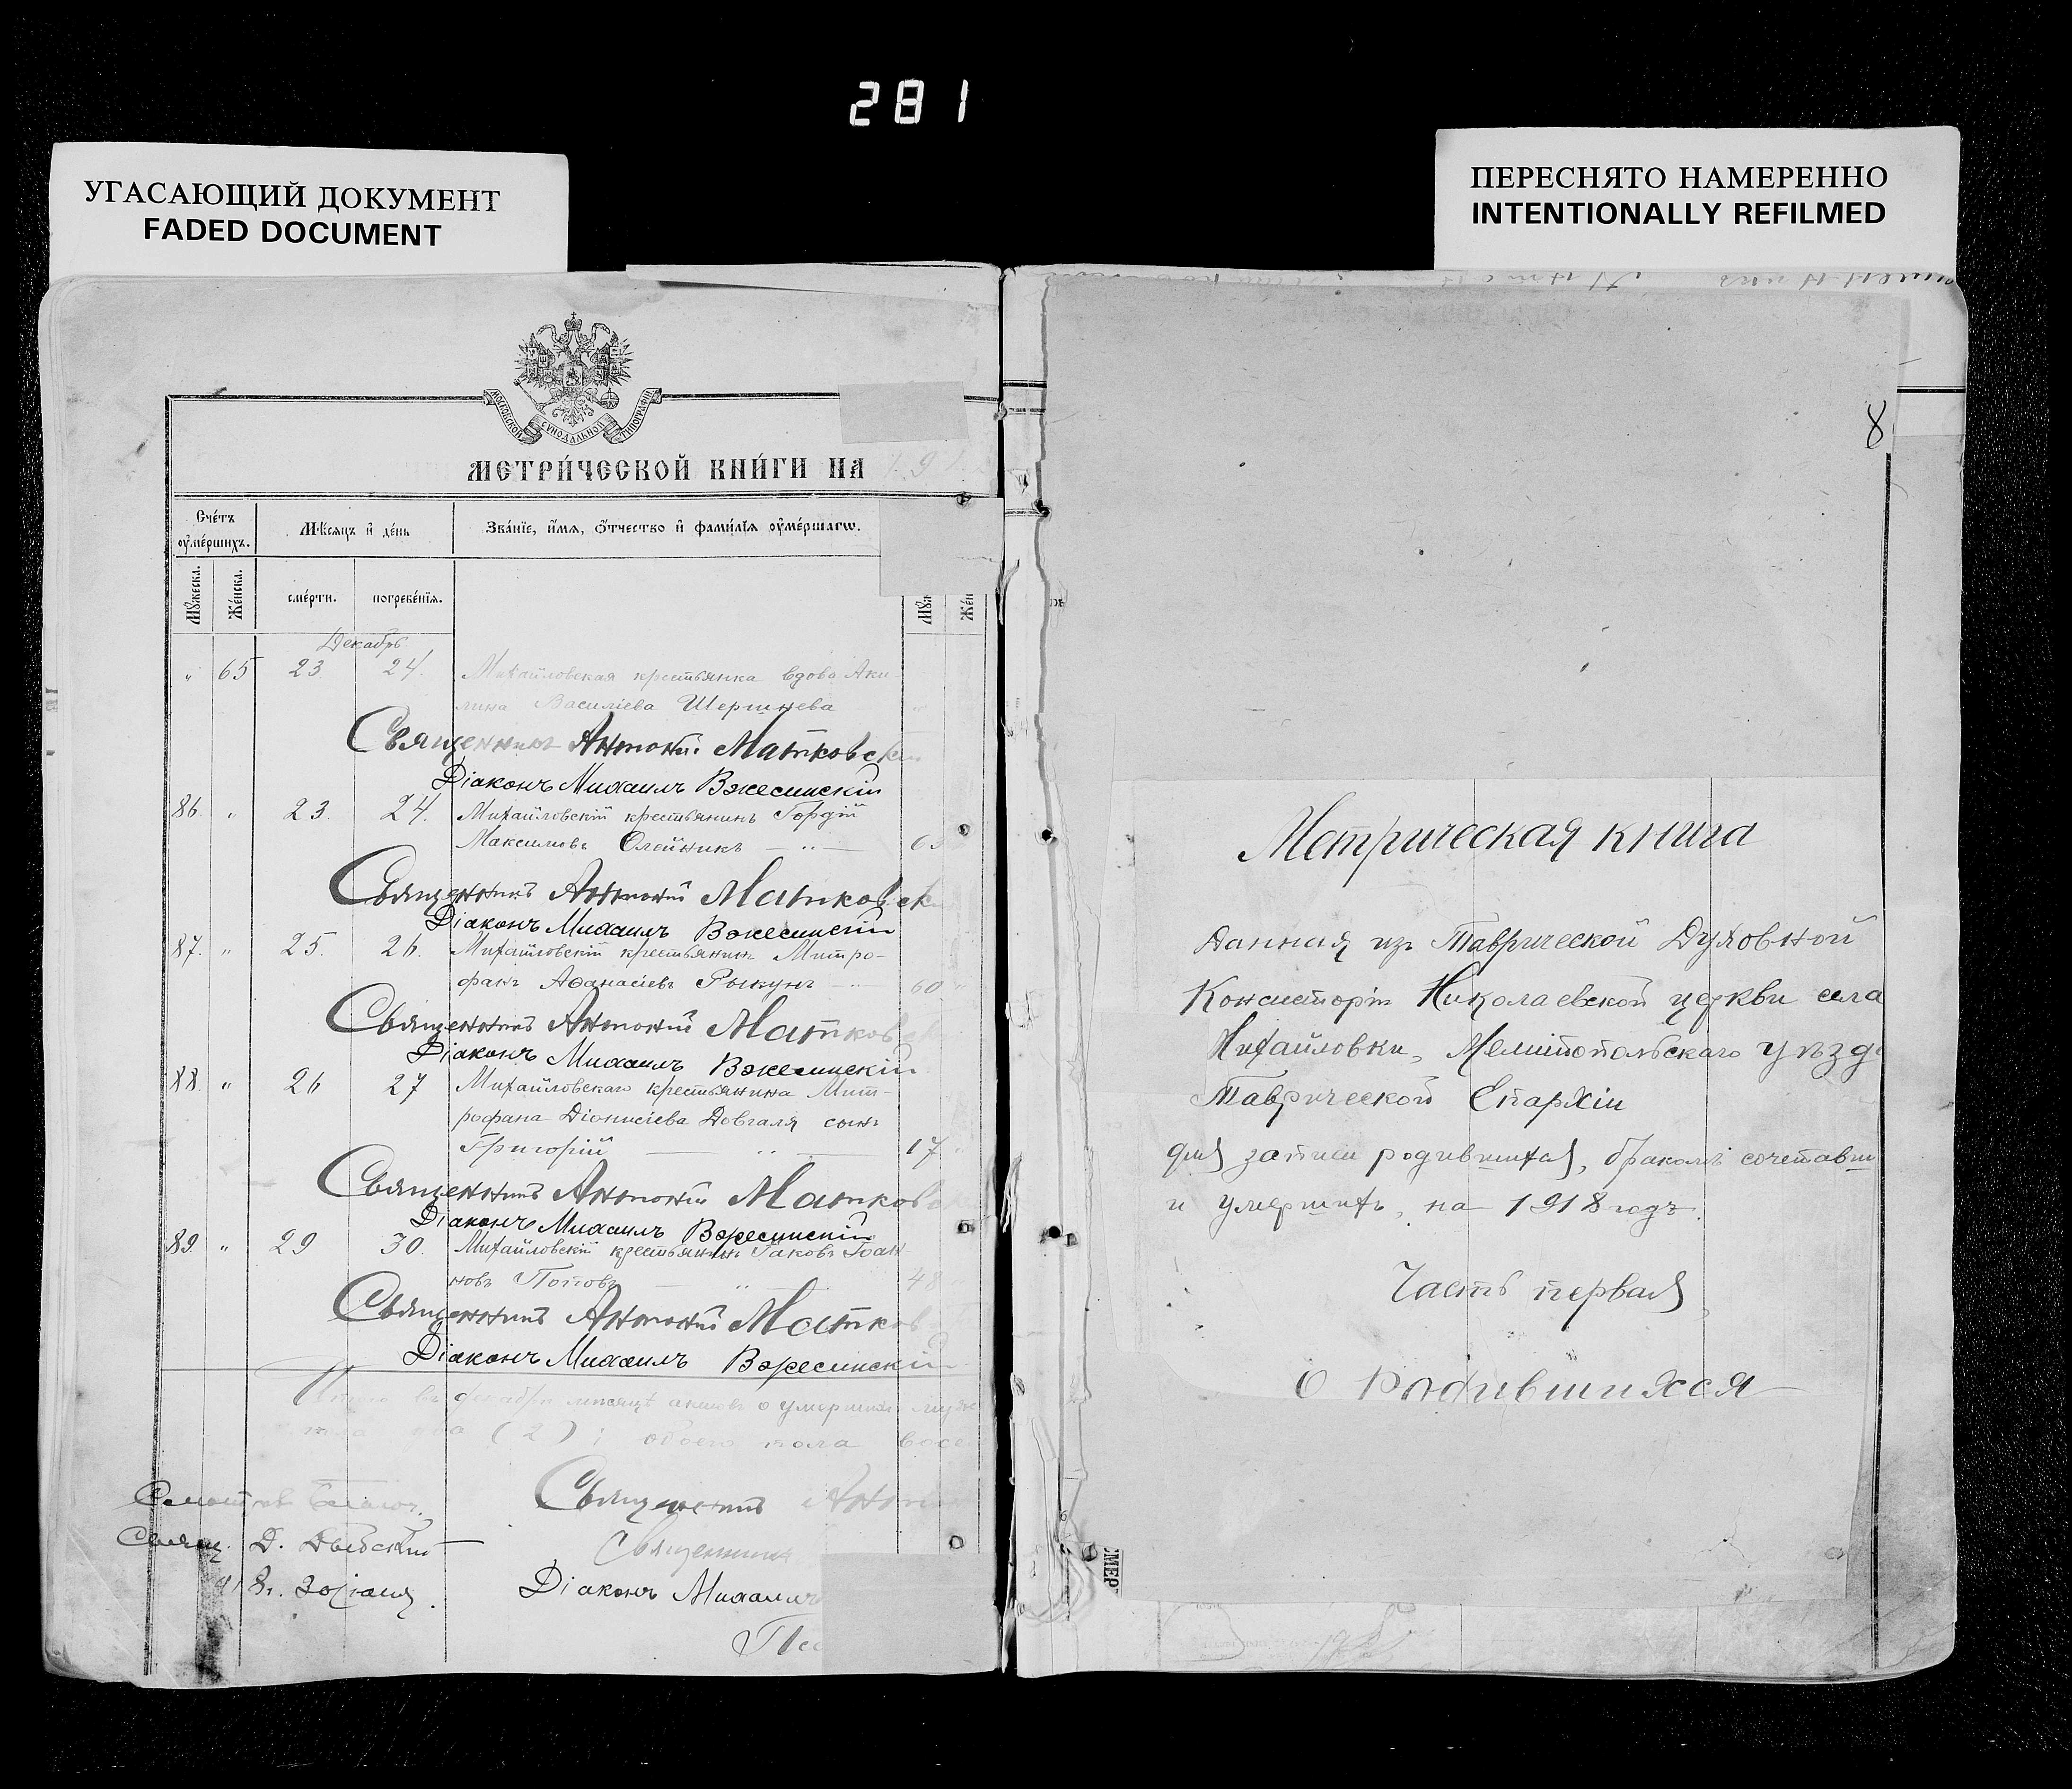 281
УГАСАЮЩИЙ ДОКУМЕНТ
FADED DOCUMENT
ПЕРЕСНЯТО НАМЕРЕННО
INTENTIONALLY REFILMED
МОСКОВСКОЙ СѴНОДАЛЬНОЙ ТИПОГРАФІИ
МЕТРИ́ЧЕСКОЙ КНИ́ГИ НА 191
Сче́тъ оумéршихъ.
Мѣ́сяцъ и де́нь
Зва́нїе, и́мя, ѻ́тчество и фами́лїя оумéршагѡ.
Мꙋ́жеска.
Же́нска.
сме́рти.
погребе́нїя.
Мꙋж
Же́н
Декабрь
" 65 23 24. Михайловская крестьянка вдова Аки-
лина Василіева Шершнева
Священникъ Антоній Матковскі
Діаконъ Михаилъ Вжесинскій
86. " 23. 24. Михайловскій крестьянинъ Гордій
Максимовъ Олейникъ — " — 63
Священникъ Антоній Матковск
Діаконъ Михаилъ Вжесинскій
87. " 25. 26. Михайловскій крестьянинъ Митро-
фанъ Аѳанасіевъ Рыкунъ — " 60 "
Священникъ Антоній Матков
Діаконъ Михаилъ Вжесинскій
88. " 26 27 Михайловскаго крестьянина Мит-
рофана Діонисіева Довгаля сынъ
Григорій — " — 17 "
Священникъ Антоній Матков
Діаконъ Михаилъ Вжесинскій
89. " 29 30. Михайловскій крестьянинъ Іаковъ Іоан
новъ Поповъ — " 48
Священникъ Антоній Матков
Діаконъ Михаилъ Вжесинскій
Итого въ декабрѣ мѣсяцѣ актовъ о умершихъ муж
два (2) ; обоего пола восе
Священникъ Антон
Свящ. Д.
Священникъ
18 г. 30 іюня.
Діаконъ Михаилъ
Пс
8
Метрическая книга
данная изъ Таврической Духовной
Консисторіи Николаевской церкви села
Михайловки, Мелитопольскаго уѣзд
Таврической Епархіи
для записи родившихся, бракомъ сочетавш
и умершихъ, на 1918 годъ.
Часть первая
О родившихся
СМЕР